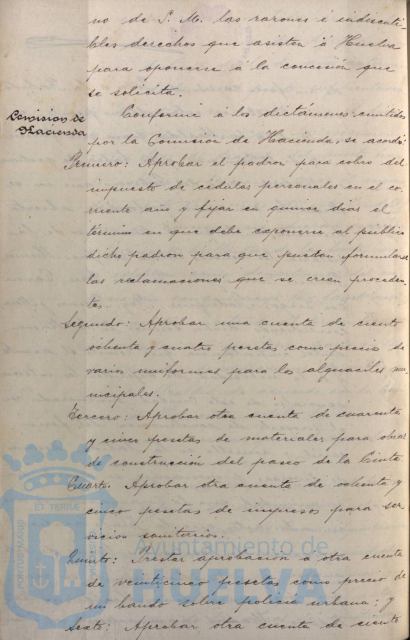 no de S. M. las razones é indiscuti-
bles derechos que asisten á Huelva
para oponerse á la concesión que
se solicita.
Comision de
Hacienda
Conforme á los dictámenes emitidos
por la Comisión de Hacienda, se acordó:
Primero: Aprobar el padron para cobro del
impuesto de cédulas personales en el co-
rriente año y fijar en quince dias el
término en que debe esponerse al público
dicho padron para que puedan formularse
las reclamaciones que se crean proceden-
tes.
Segundo: Aprobar una cuenta de ciento
ochenta y cuatro pesetas como precio de
varios uniformes para los alguaciles mu-
nicipales.
Tercero: Aprobar otra cuenta de cuarenta
y cinco pesetas de materiales para obras
de construcción del paseo de la Cinta.
Cuarto: Aprobar otra cuenta de ochenta y
cinco pesetas de impresos para ser-
vicios sanitarios.
Quinto: Prestar aprobación á otra cuenta
de veinticinco pesetas como precio de
un bando sobre policia urbana; y
Sexto: Aprobar otra cuenta de ciento
Ayuntamiento de
HUELVA